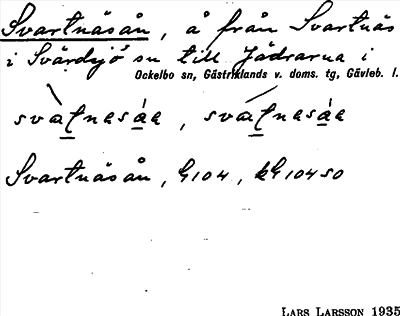 Svartnäsån, å från Svartnäs
i Svärdsjö sn till Jädrarna i
Ockelbo sn, Gästriklands v. doms. tg, Gävleb. l.
svaṯnesá̱a, svaṯnesá̱a
Svartnäsån, G104, kG104 SO
LARS LARSSON 1935